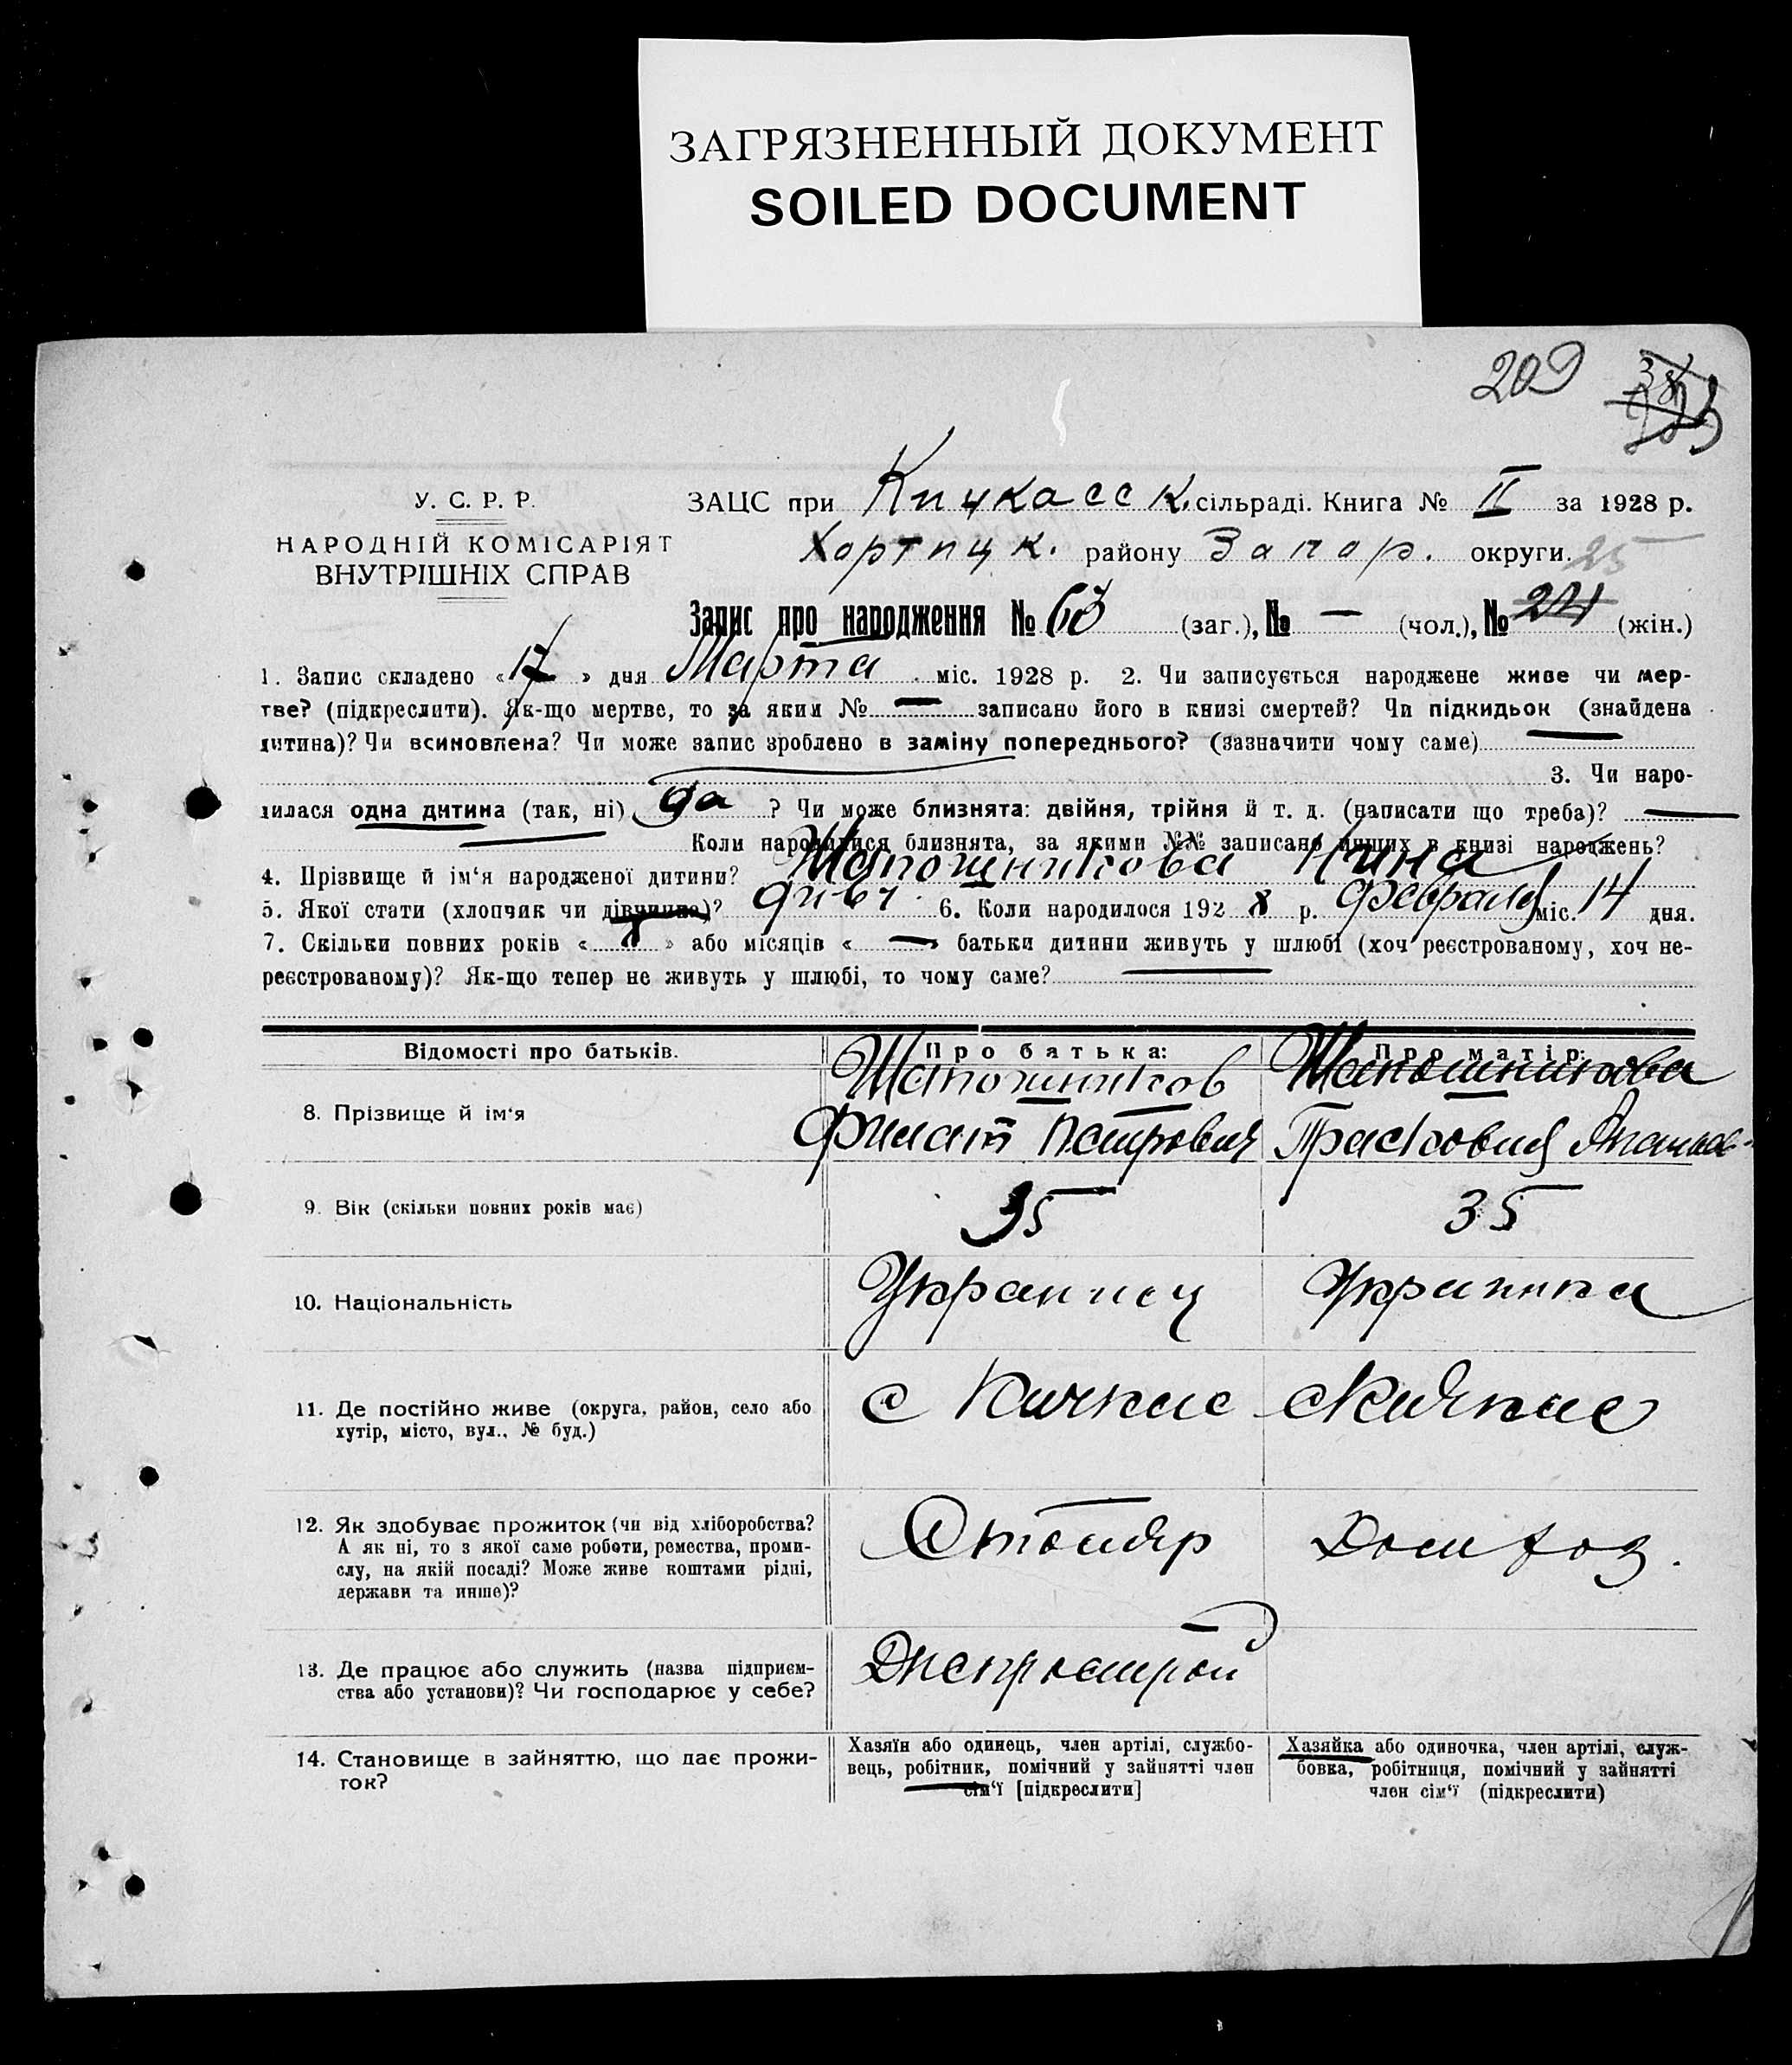 ЗАГРЯЗНЕННЫЙ ДОКУМЕНТ
SOILED DOCUMENT
209
У. С. Р. Р.
НАРОДНІЙ КОМІСАРІЯТ
ВНУТРІШНІХ СПРАВ
ЗАЦС при Кичкасск. сільраді. Книга № II за 1928 р.
Хортицк. району Запор. округи. 25
Запис про народження № 63 (заг.), № — (чол.), № 24 (жін.)
1. Запис складено «17» дня Марта міс. 1928 р. 2. Чи записується народжене живе чи мер-
тве? (підкреслити). Як-що мертве, то за яким № — записано його в книзі смертей? Чи підкидьок (знайдена
дитина)? Чи всиновлена? Чи може запис зроблено в заміну попереднього? (зазначити чому саме) —
3. Чи наро-
дилася одна дитина (так, ні) да ? Чи може близнята: двійня, трійня й т. д. (написати що треба)? —
Коли народилися близнята, за якими №№ записано инших в книзі народжень?
4. Прізвище й ім‘я народженої дитини? Шапошникова Нина
5. Якої стати (хлопчик чи дівчинка)? дивч. 6. Коли народилося 1928 р. Февраля міс. 14 дня.
7. Скільки повних років « 8 » або місяців « — » батьки дитини живуть у шлюбі (хоч реєстрованому, хоч не-
реєстрованому)? Як-що тепер не живуть у шлюбі, то чому саме? —
Відомості про батьків. Про батька: Про матір:
8. Прізвище й ім‘я Шапошников Шапошникова
Филат Петрович Прасковия
9. Вік (скільки повних років має) 35 35
10. Національність Украинец Украинка
11. Де постійно живе (округа, район, село або
хутір, місто, вул., № буд.) с Кичкас с Кичкас
12. Як здобуває прожиток (чи від хліборобства?
А як ні, то з якої саме роботи, ремества, проми-
слу, на якій посаді? Може живе коштами рідні,
держави та инше)? Столяр Дом хоз.
13. Де працює або служить (назва підприєм-
ства або установи)? Чи господарює у себе? Днепрострой
14. Становище в зайняттю, що дає прожи-
ток?
Хазяїн або одинець, член артілі, службо-
вець, робітник, помічний у зайнятті член
сім‘ї [підкреслити]
Хазяйка або одиночка, член артілі, служ-
бовка, робітниця, помічний у зайнятті
член сім‘ї (підкреслити)